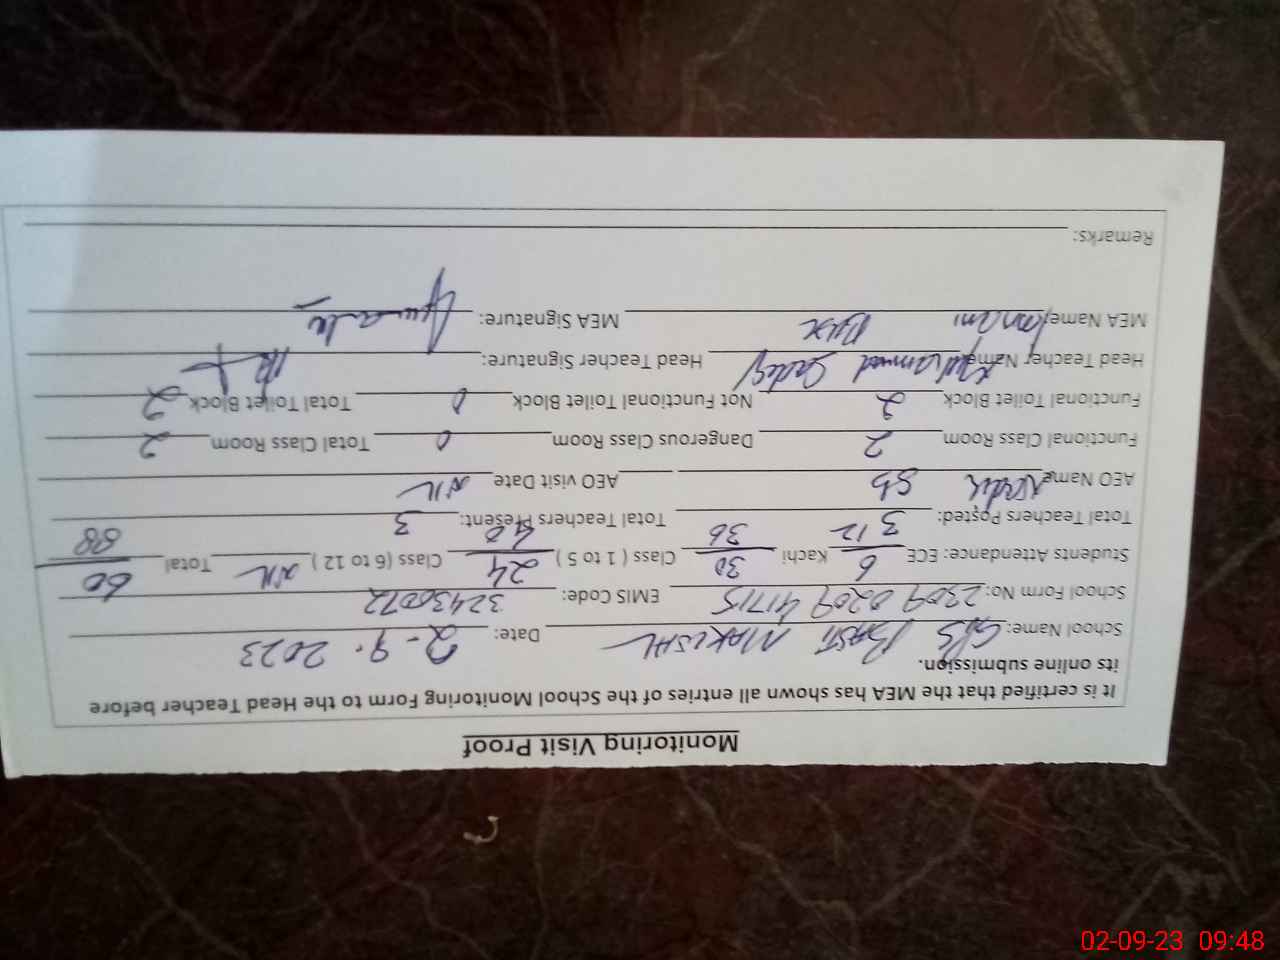 Monitoring Visit Proof
It is certified that the MEA has shown all entries of the School Monitoring Form to the Head Teacher before
its online submission.
School Name: GPS BASTI Date: 2-9-2023
School Form No: 2309 0209 41715 EMIS Code: 32430072
Students Attendance: ECE 6/12 Kachi 30/36 Class ( 1 to 5 ) 24/40 Class (6 to 12 ) Nil Total 60/88
Total Teachers Posted: 3 Total Teachers Present: 3
AEO Name AEO visit Date Nil
Functional Class Room 2 Dangerous Class Room 0 Total Class Room 2
Functional Toilet Block 2 Not Functional Toilet Block 0 Total Toilet Block 2
Head Teacher Name Muhammad Head Teacher Signature:
MEA Name Bux MEA Signature:
Remarks:
02-09-23 09:48